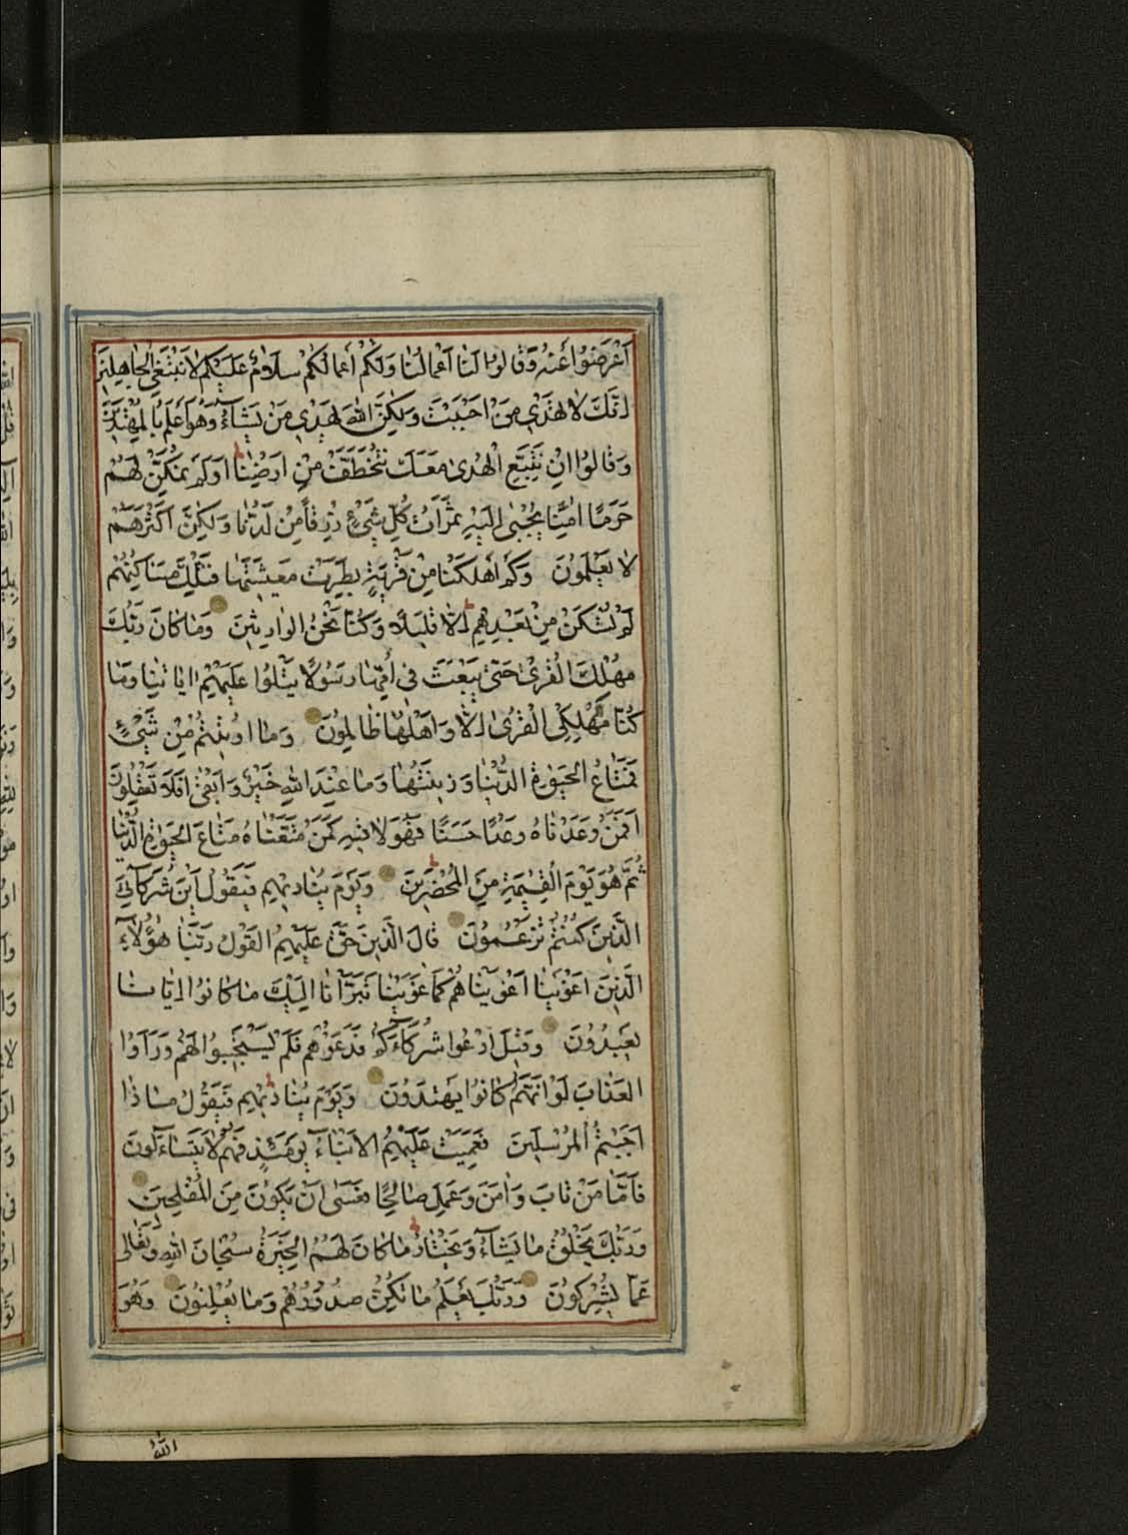 اَعْرَضُوا عَنْهُ وَقَالُوا لَنَا اَعْمَالُنَا وَلَكُمْ اَعْمَالُكُمْ سَلَامٌ عَلَيْكُمْ لَا نَبْتَغِي الْجَاهِلِينَ
اِنَّكَ لَا تَهْدِي مَنْ اَحْبَبْتَ وَلَكِنَّ اللّٰهَ يَهْدِي مَنْ يَشَاءُ وَهُوَ اَعْلَمُ بِالْمُهْتَدِينَ
وَقَالُوا اِنْ نَتَّبِعِ الْهُدٰى مَعَكَ نُتَخَطَّفْ مِنْ اَرْضِنَا اَوَلَمْ نُمَكِّنْ لَهُمْ
حَرَمًا اٰمِنًا يُجْبٰى اِلَيْهِ ثَمَرَاتُ كُلِّ شَيْءٍ رِزْقًا مِنْ لَدُنَّا وَلٰكِنَّ اَكْثَرَهُمْ
لَا يَعْلَمُونَ وَكَمْ اَهْلَكْنَا مِنْ قَرْيَةٍ بَطِرَتْ مَعِيشَتَهَا فَتِلْكَ مَسَاكِنُهُمْ
لَمْ تُسْكَنْ مِنْ بَعْدِهِمْ اِلَّا قَلِيلًا وَكُنَّا نَحْنُ الْوَارِثِينَ وَمَا كَانَ رَبُّكَ
مُهْلِكَ الْقُرٰى حَتّٰى يَبْعَثَ فِي اُمِّهَا رَسُولًا يَتْلُوا عَلَيْهِمْ اٰيَاتِنَا وَمَا
كُنَّا مُهْلِكِي الْقُرٰى اِلَّا وَاَهْلُهَا ظَالِمُونَ وَمَا اُوتِيتُمْ مِنْ شَيْءٍ
فَمَتَاعُ الْحَيٰوةِ الدُّنْيَا وَزِينَتُهَا وَمَا عِنْدَ اللّٰهِ خَيْرٌ وَاَبْقٰى اَفَلَا تَعْقِلُونَ
اَفَمَنْ وَعَدْنَاهُ وَعْدًا حَسَنًا فَهُوَ لَاقِيهِ كَمَنْ مَتَّعْنَاهُ مَتَاعَ الْحَيٰوةِ الدُّنْيَا
ثُمَّ هُوَ يَوْمَ الْقِيٰمَةِ مِنَ الْمُحْضَرِينَ وَيَوْمَ يُنَادِيهِمْ فَيَقُولُ اَيْنَ شُرَكَائِيَ
الَّذِينَ كُنْتُمْ تَزْعُمُونَ قَالَ الَّذِينَ حَقَّ عَلَيْهِمُ الْقَوْلُ رَبَّنَا هٰؤُلَاءِ
الَّذِينَ اَغْوَيْنَا اَغْوَيْنَاهُمْ كَمَا غَوَيْنَا تَبَرَّأْنَا اِلَيْكَ مَا كَانُوا اِيَّانَا
يَعْبُدُونَ وَقِيلَ ادْعُوا شُرَكَاءَكُمْ فَدَعَوْهُمْ فَلَمْ يَسْتَجِيبُوا لَهُمْ وَرَاَوُا
الْعَذَابَ لَوْ اَنَّهُمْ كَانُوا يَهْتَدُونَ وَيَوْمَ يُنَادِيهِمْ فَيَقُولُ مَاذَا
اَجَبْتُمُ الْمُرْسَلِينَ فَعَمِيَتْ عَلَيْهِمُ الْاَنْبَاءُ يَوْمَئِذٍ فَهُمْ لَا يَتَسَاءَلُونَ
فَاَمَّا مَنْ تَابَ وَاٰمَنَ وَعَمِلَ صَالِحًا فَعَسٰى اَنْ يَكُونَ مِنَ الْمُفْلِحِينَ
وَرَبُّكَ يَخْلُقُ مَا يَشَاءُ وَيَخْتَارُ مَا كَانَ لَهُمُ الْخِيَرَةُ سُبْحَانَ اللّٰهِ وَتَعَالٰى
عَمَّا يُشْرِكُونَ وَرَبُّكَ يَعْلَمُ مَا تُكِنُّ صُدُورُهُمْ وَمَا يُعْلِنُونَ وَهُوَ
اللّٰهُ